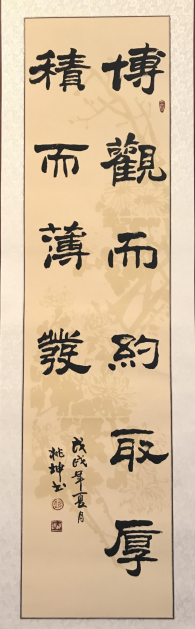 博觀而約取厚
積而薄發
戊戌年夏月
兆坤书